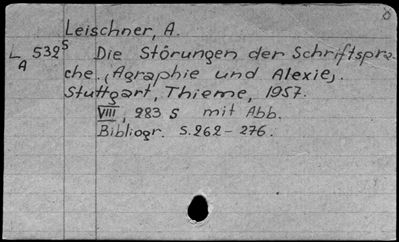 Leischner, A.
L A 532 S Die Störungen der Schriftspra-
che. (Agraphie und Alexie).
Stuttgart, Thieme, 1957.
VIII, 283 S mit Abb.
Bibliogr. S. 262-276.